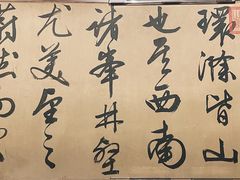 環滁皆山
也其西南
諸峯林壑
尤美望之
蔚然而